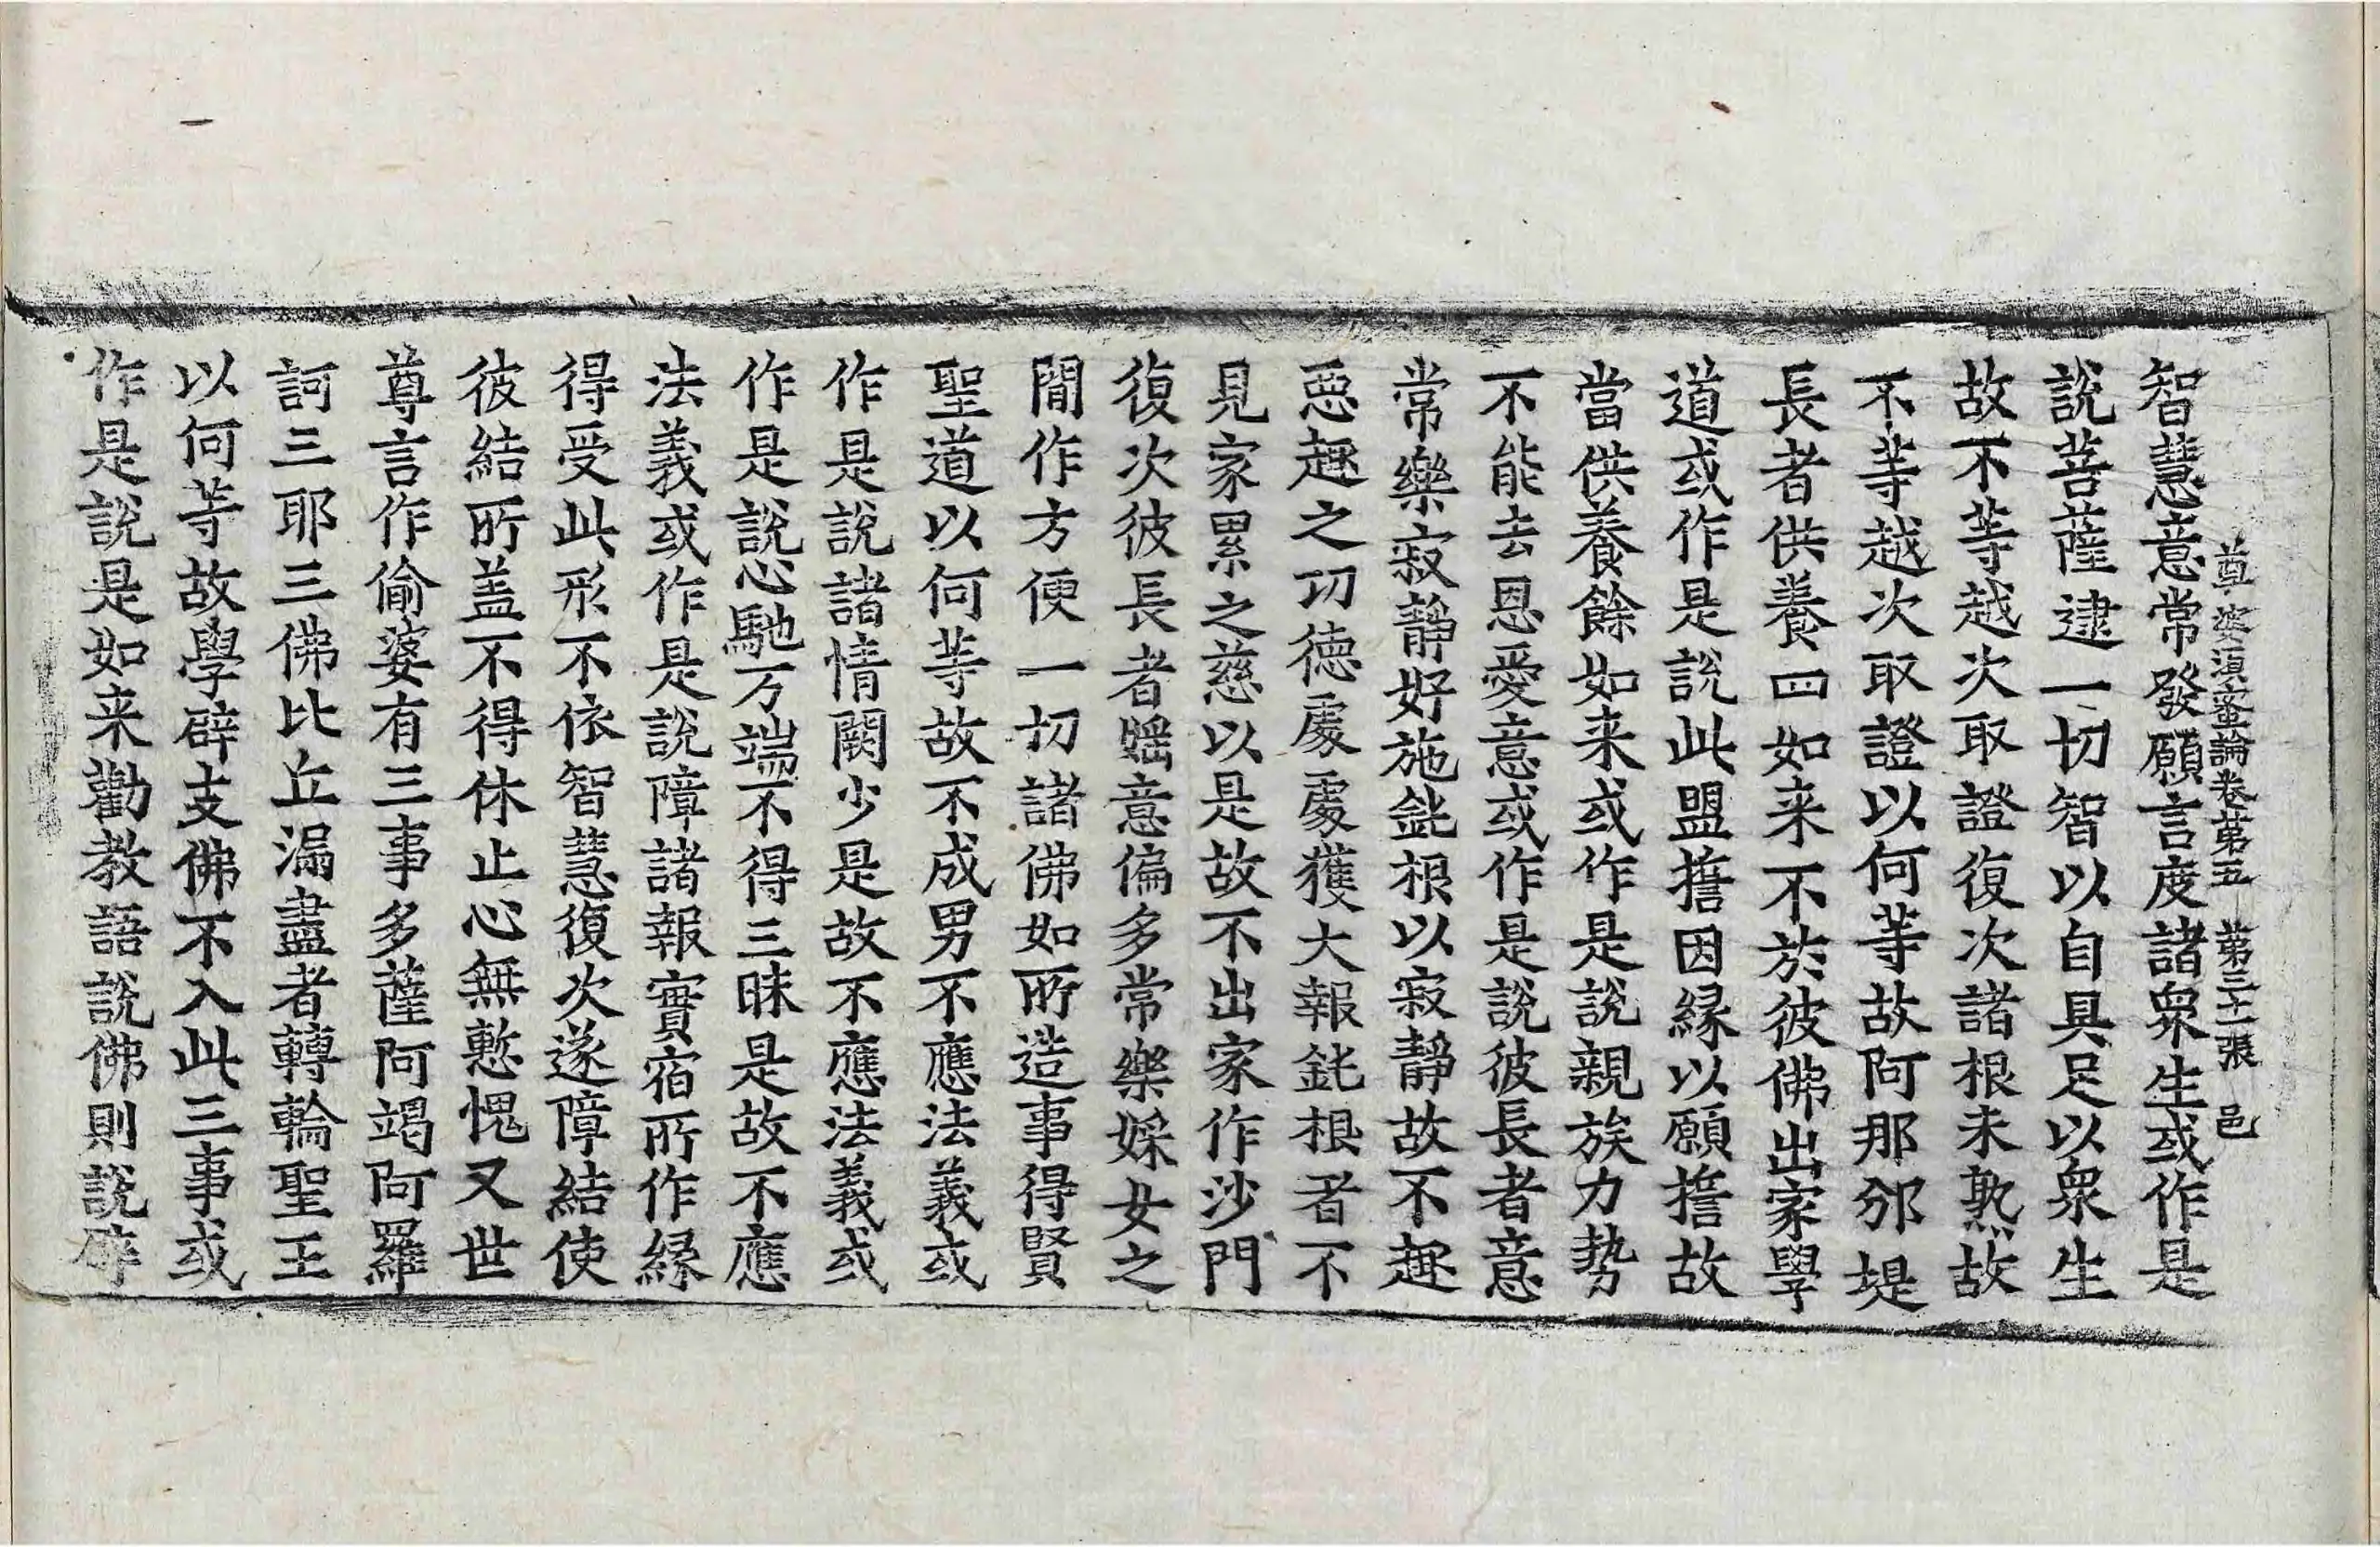 尊婆須蜜論卷第五　第三十一張　邑
智慧意常發願言度諸衆生或作是
說菩薩逮一切智以自具足以衆生
故不等越次取證復次諸根未熟故
不等越次取證以何等故阿那邠堤
長者供養四如来不於彼佛出家學
道或作是說此盟誓因縁以願誓故
當供養餘如来或作是說親族力勢
不能去恩愛意或作是說彼長者意
常樂寂靜好施鈍根以寂靜故不趣
惡趣之切德處處獲大報鈍根者不
見家累之慈以是故不出家作沙門
復次彼長者婬意偏多常樂婇女之
閒作方便一切諸佛如所造事得賢
聖道以何等故不成男不應法義或
作是說諸情闕少是故不應法義或
作是說心馳万端不得三昧是故不應
法義或作是說障諸報實宿所作縁
得受此形不依智慧復次遂障結使
彼結所盖不得休止心無慙愧又世
尊言作偷婆有三事多薩阿竭阿羅
訶三耶三佛比丘漏盡者轉輪聖王
以何等故學辟支佛不入此三事或
作是說是如来勸教語說佛則說辟